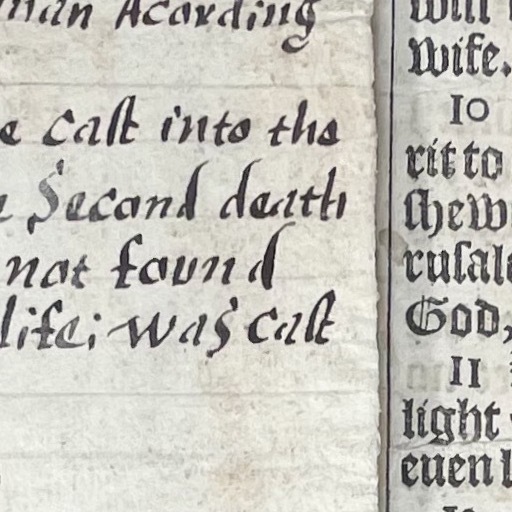 man Acording
cast into the
Second death
not found
life; was cast
will
wife.
10
rit to
shew
rusale
God,
11
light
euen l